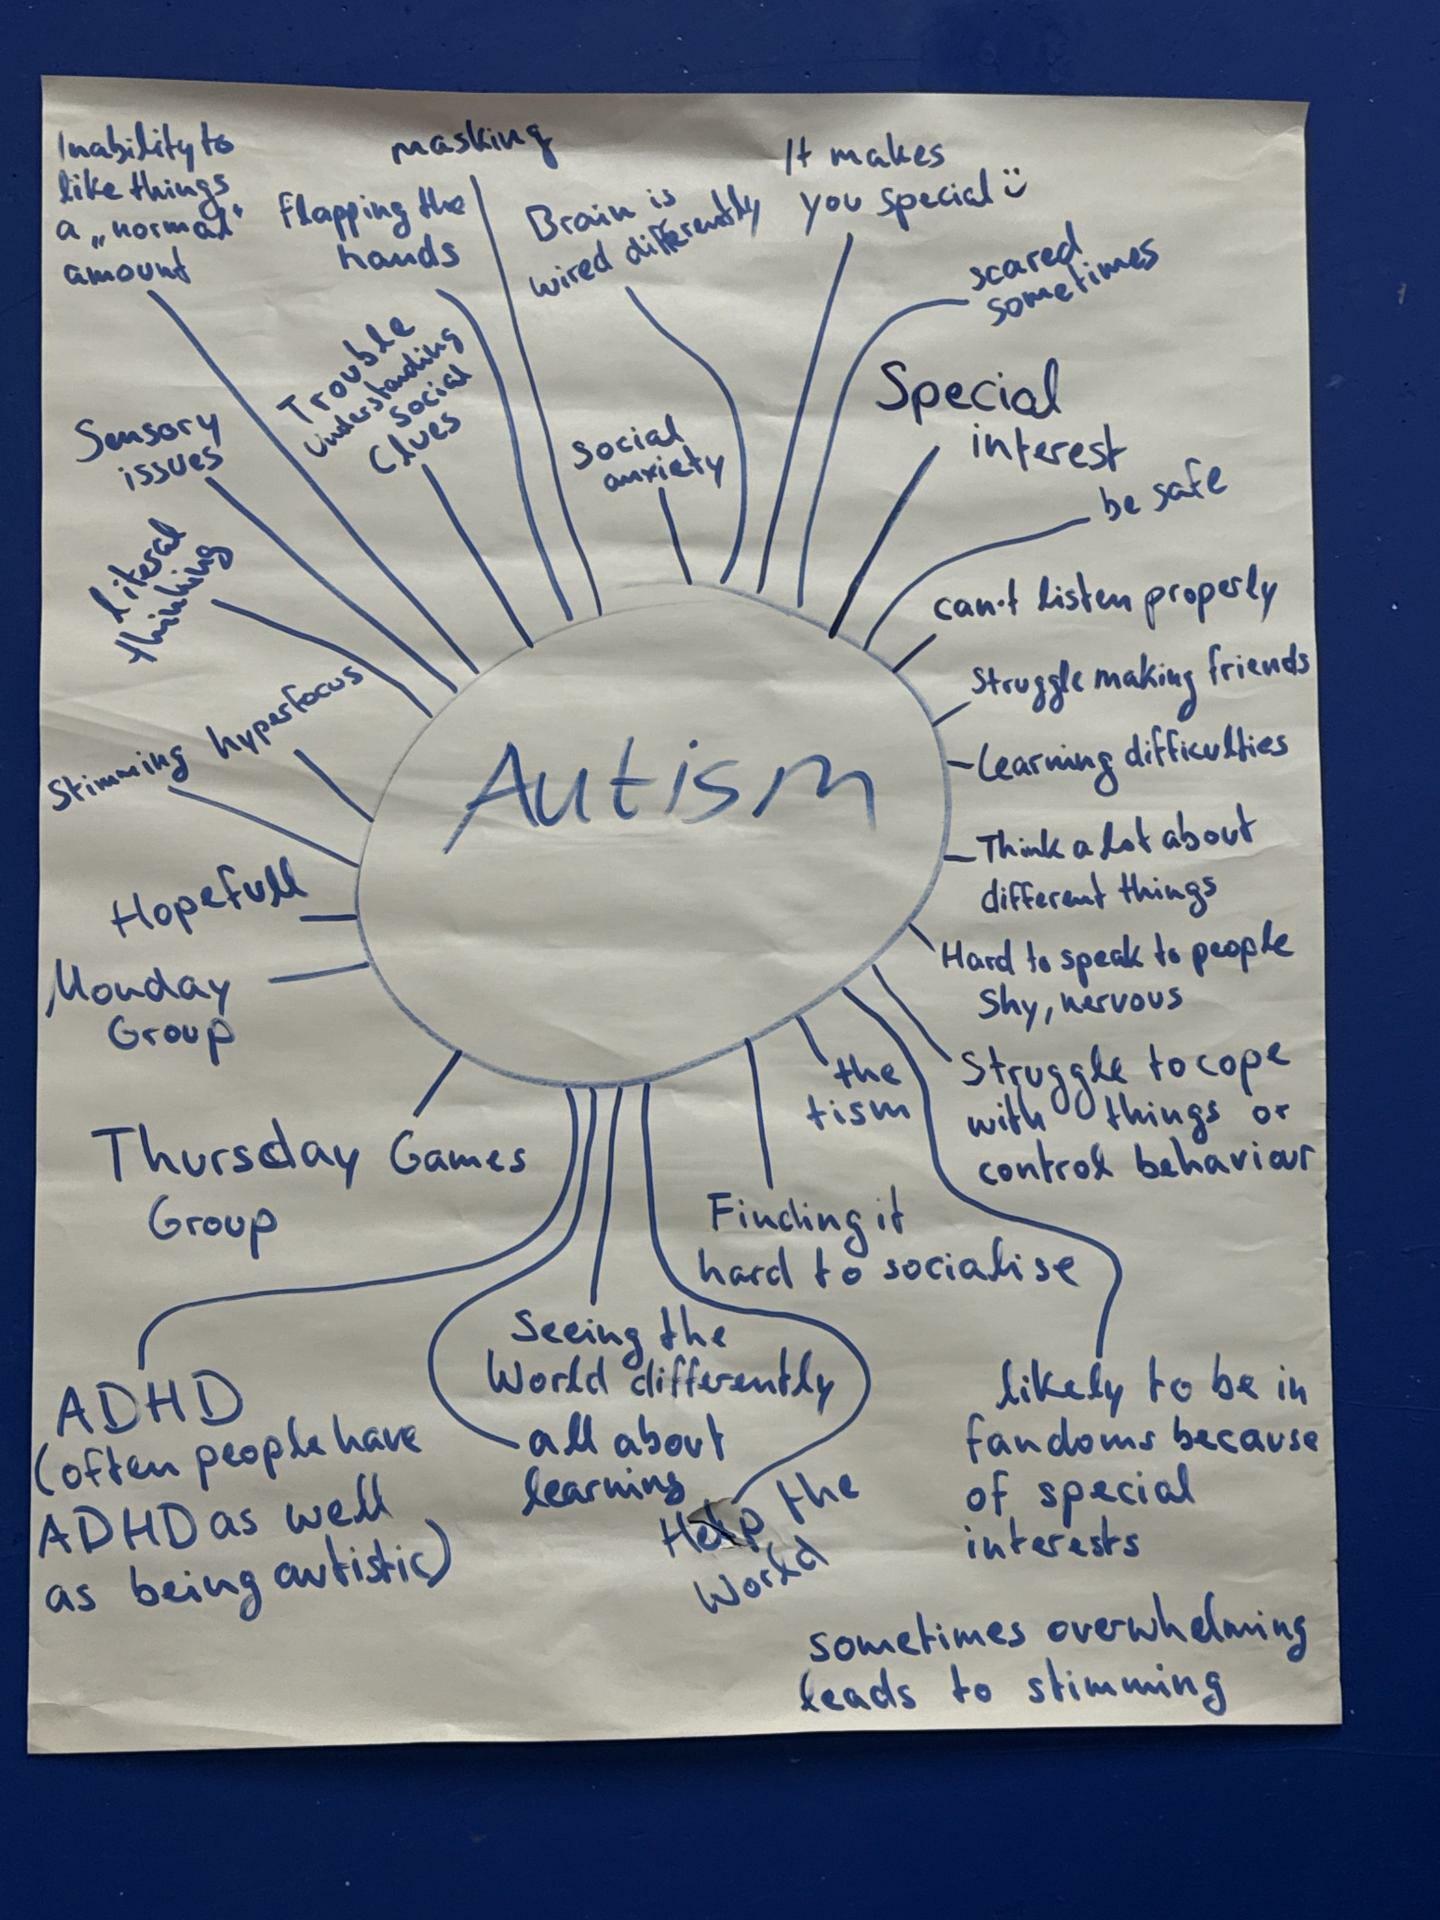 Inability to
like things
a „normal"
amount
masking
flapping the
hands
Brain is
wired differently
It makes
you special
scared
sometimes
Trouble
understanding
social
Clues
Sensory
issues
social
anxiety
Special
interest
be safe
Literal
thinking
can't listen properly
Struggle making friends
Stimming
hyperfocus
Autism
Learning difficulties
Think a lot about
different things
Hopefull
Monday
Group
Hard to speak to people
Shy, nervous
the
tism
Struggle to cope
with things or
control behaviour
Thursday Games
Group
Finding it
hard to socialise
Seeing the
World differently
all about
learning
Help the
World
likely to be in
fandoms because
of special
interests
ADHD
(often people have
ADHD as well
as being autistic)
sometimes overwhelming
leads to stimming